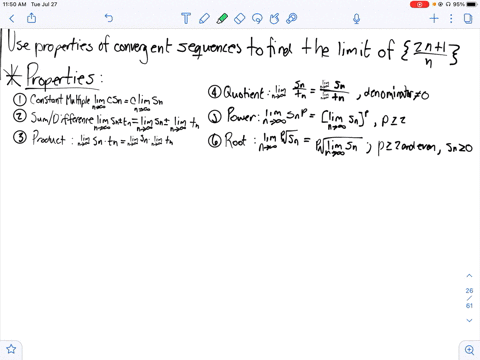 11:50 AM Tue Jul 27
95%
Use properties of convergent sequences to find the limit of {2n+1/n}
* Properties:
① Constant Multiple lim n→∞ CSn = C lim n→∞ Sn
② Sum/Difference lim n→∞ Sn ± tn = lim n→∞ Sn ± lim n→∞ tn
③ Product: lim n→∞ Sn · tn = lim n→∞ Sn · lim n→∞ tn
④ Quotient: lim n→∞ Sn/tn = lim n→∞ Sn/lim n→∞ tn, denominator≠0
⑤ Power: lim n→∞ Sn^p = [lim n→∞ Sn]^p, p≥2
⑥ Root: lim n→∞ ᵖ√Sn = ᵖ√lim n→∞ Sn; p≥2 and even, Sn≥0
26
/
61